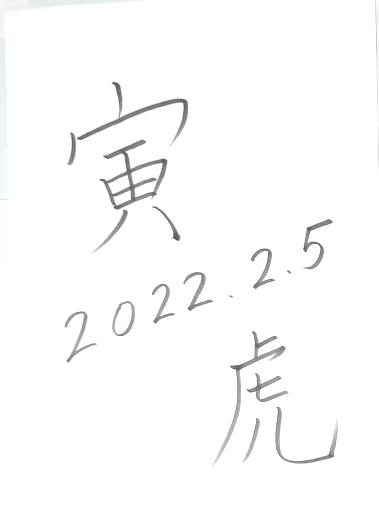 寅
2022.2.5
虎